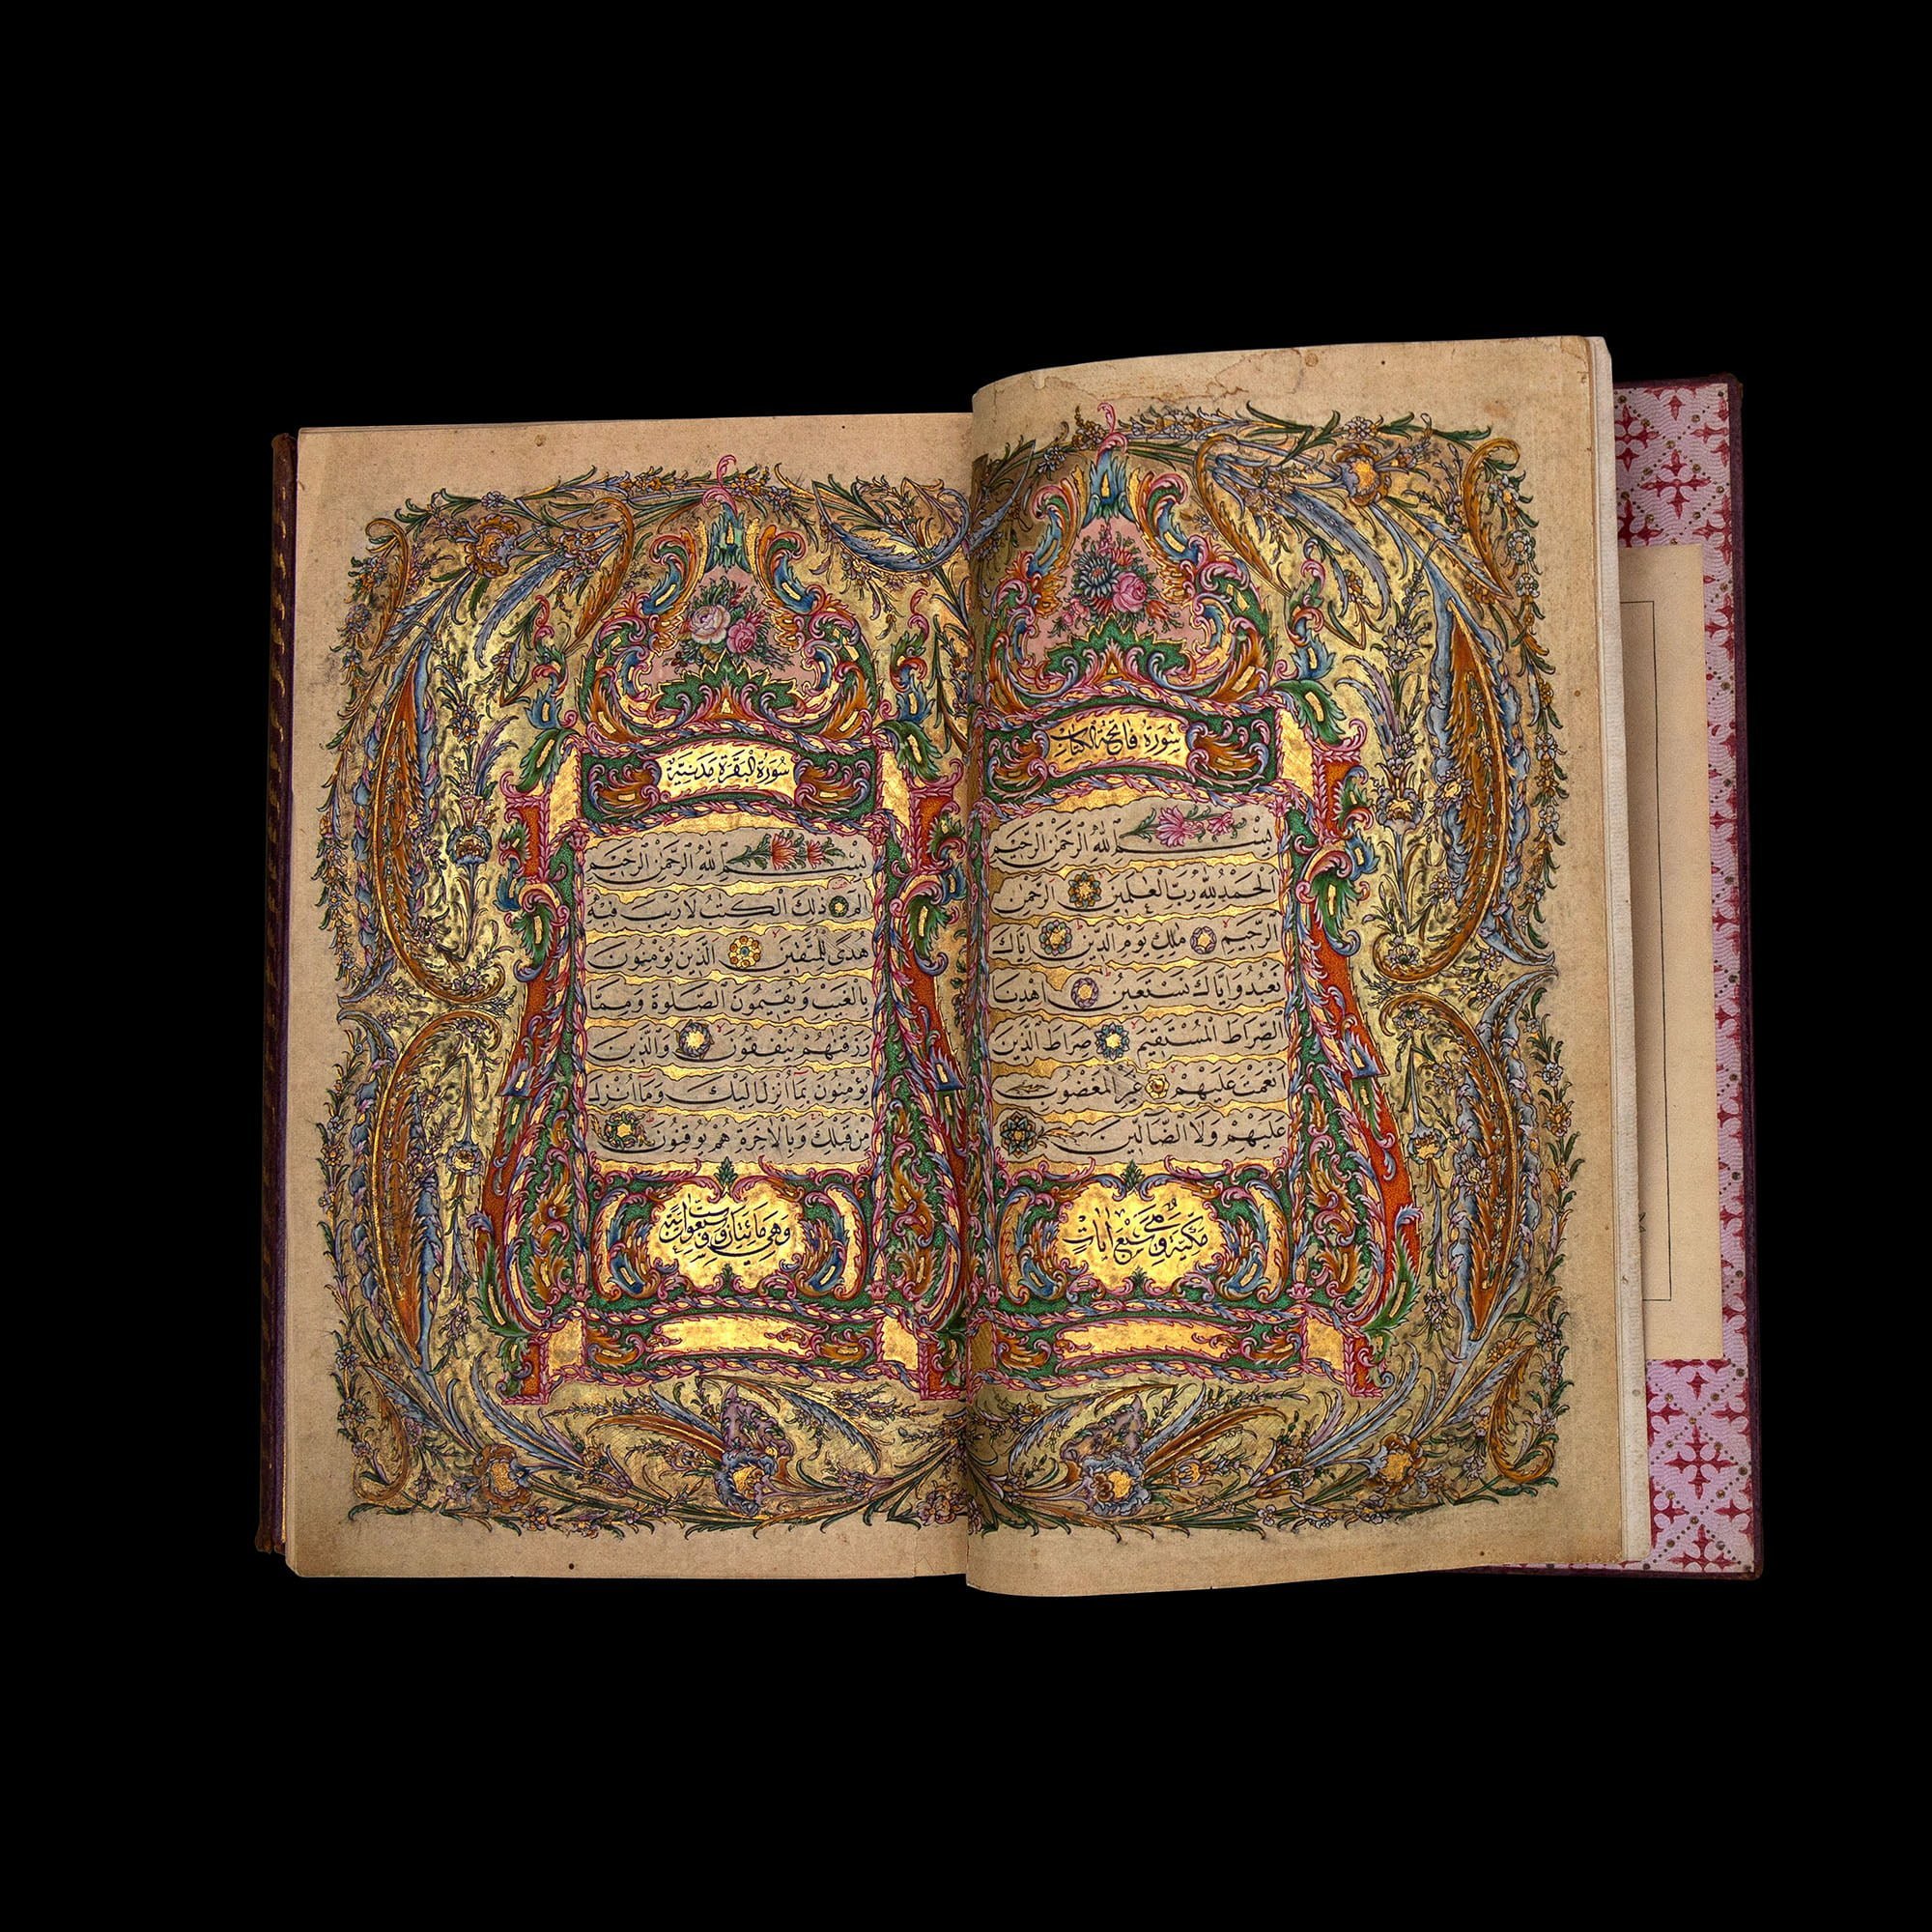 سورة فاتحة الكتاب
بسم الله الرحمن الرحيم
الحمد لله رب العلمين الرحمن
الرحيم ملك يوم الدين اياك
نعبد واياك نستعين اهدنا
الصراط المستقيم صراط الذين
انعمت عليهم غير المغضوب
عليهم ولا الضالين
مكية وهي سبع ايات
سورة البقرة مدنية
بسم الله الرحمن الرحيم
الم ذلك الكتب لا ريب فيه
هدى للمتقين الذين يؤمنون
بالغيب ويقيمون الصلوة ومما
رزقنهم ينفقون والذين
يؤمنون بما انزل اليك وما انزل
من قبلك وبالاخرة هم يوقنون
وهي مائتان وست وثمانون اية